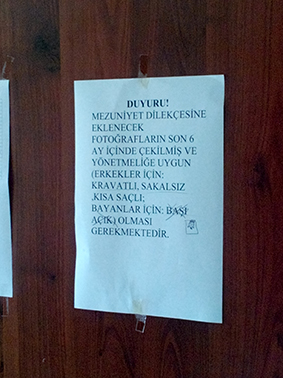 DUYURU!
MEZUNİYET DİLEKÇESİNE
EKLENECEK
FOTOĞRAFLARIN SON 6
AY İÇİNDE ÇEKİLMİŞ VE
YÖNETMELİĞE UYGUN
(ERKEKLER İÇİN:
KRAVATLI, SAKALSIZ
,KISA SAÇLI;
BAYANLAR İÇİN: BAŞI
AÇIK) OLMASI
GEREKMEKTEDİR.